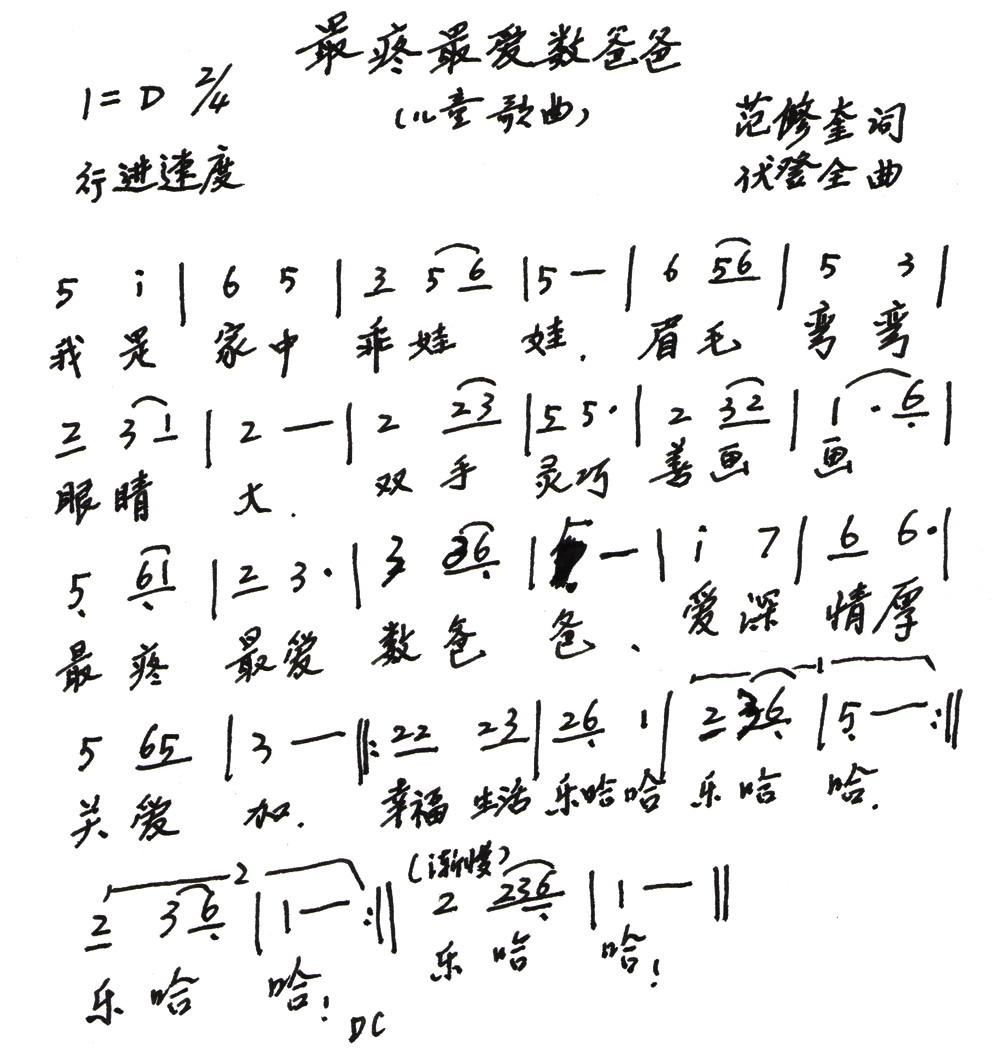 最疼最爱数爸爸
1=D 2/4
(儿童歌曲)
范修奎词
行进速度
伏登全曲
5 i | 6 5 | 3 5 6 | 5 — | 6 56 | 5 3 |
我是 家中 乖娃 娃. 眉毛 弯弯
2 3 1 | 2 — | 2 23 | 5 5· | 2 32 | 1 · 6 |
眼睛 大. 双手 灵巧 善画 画
5 61 | 2 3· | 3 36 | — | i 7 | 6 6· |
最疼 最爱 数爸 爸、 爱深 情厚
1
5 65 | 3 — ‖: 22 23 | 26 1 | 2 36 | 5 — :‖
关爱 加. 幸福 生活 乐哈哈 乐哈 哈.
2 (渐慢)
2 3 6 | 1 — :‖ 2 236 | 1 — ‖
乐哈 哈! 乐哈 哈!
DC